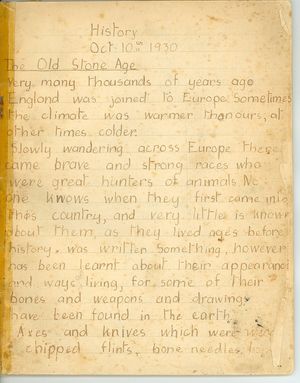 History
Oct. 10th 1930
The Old Stone Age
Very many thousands of years ago
England was joined to Europe. Sometimes
the climate was warmer than ours, at
other times colder.
Slowly wandering across Europe there
came brave and strong races who
were great hunters of animals. No
one knows when they first came into
this country, and very little is known
about them, as they lived ages before
history was written. Something, however
has been learnt about their appearance
and ways living, for some of their
bones and weapons and drawings
have been found in the earth.
Axes and knives which were
chipped flints, bone needles,